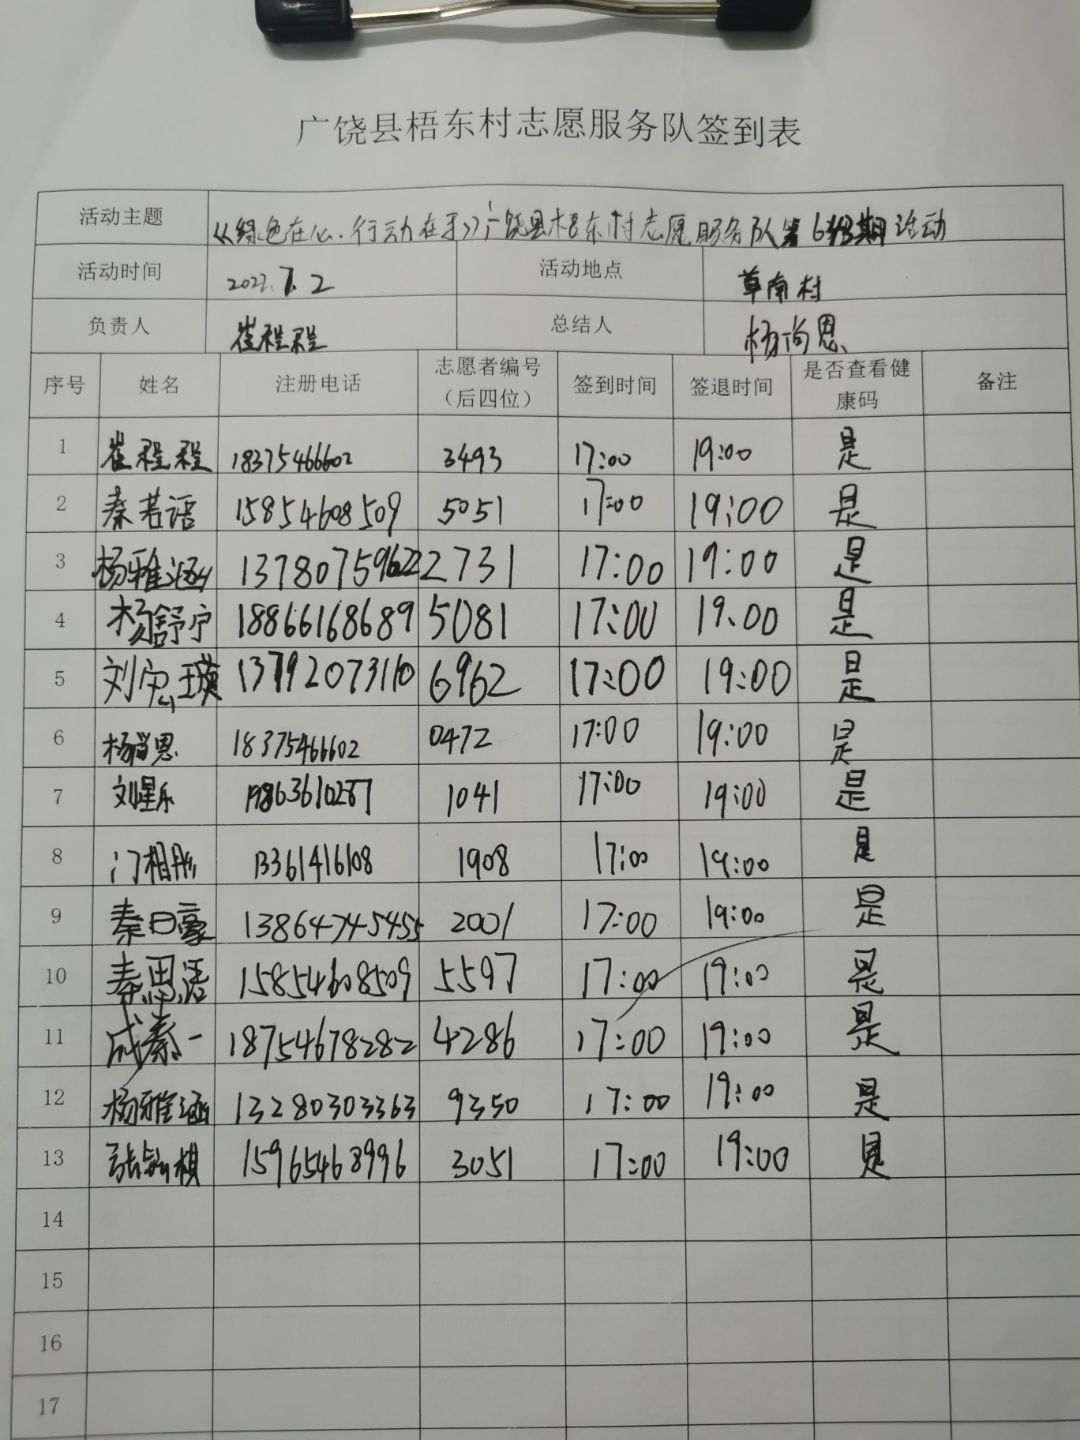 广饶县梧东村志愿服务队签到表
活动主题 《绿色在心·行动在手》广饶县梧东村志愿服务队第 期活动
活动时间 2022.7.2 活动地点 草南村
负责人 崔程程 总结人 杨尚恩
序号 姓名 注册电话 志愿者编号（后四位） 签到时间 签退时间 是否查看健康码 备注
1 崔程程 18375466602 3493 17:00 19:00 是
2 秦若语 15854608509 5051 17:00 19:00 是
3 杨雅涵 13780759622 2731 17:00 19:00 是
4 杨舒宁 18866168689 5081 17:00 19:00 是
5 刘宝瑛 13792073110 6962 17:00 19:00 是
6 杨尚恩 18375466602 0472 17:00 19:00 是
7 刘星乐 1041 17:00 19:00 是
8 门相彤 13361416108 1908 17:00 19:00 是
9 秦曰豪 13864745455 2001 17:00 19:00 是
10 秦思语 15854608509 5597 17:00 19:00 是
11 成秦一 18754678282 4286 17:00 19:00 是
12 杨雅涵 13280303363 9350 17:00 19:00 是
13 15965468996 3051 17:00 19:00 是
14
15
16
17